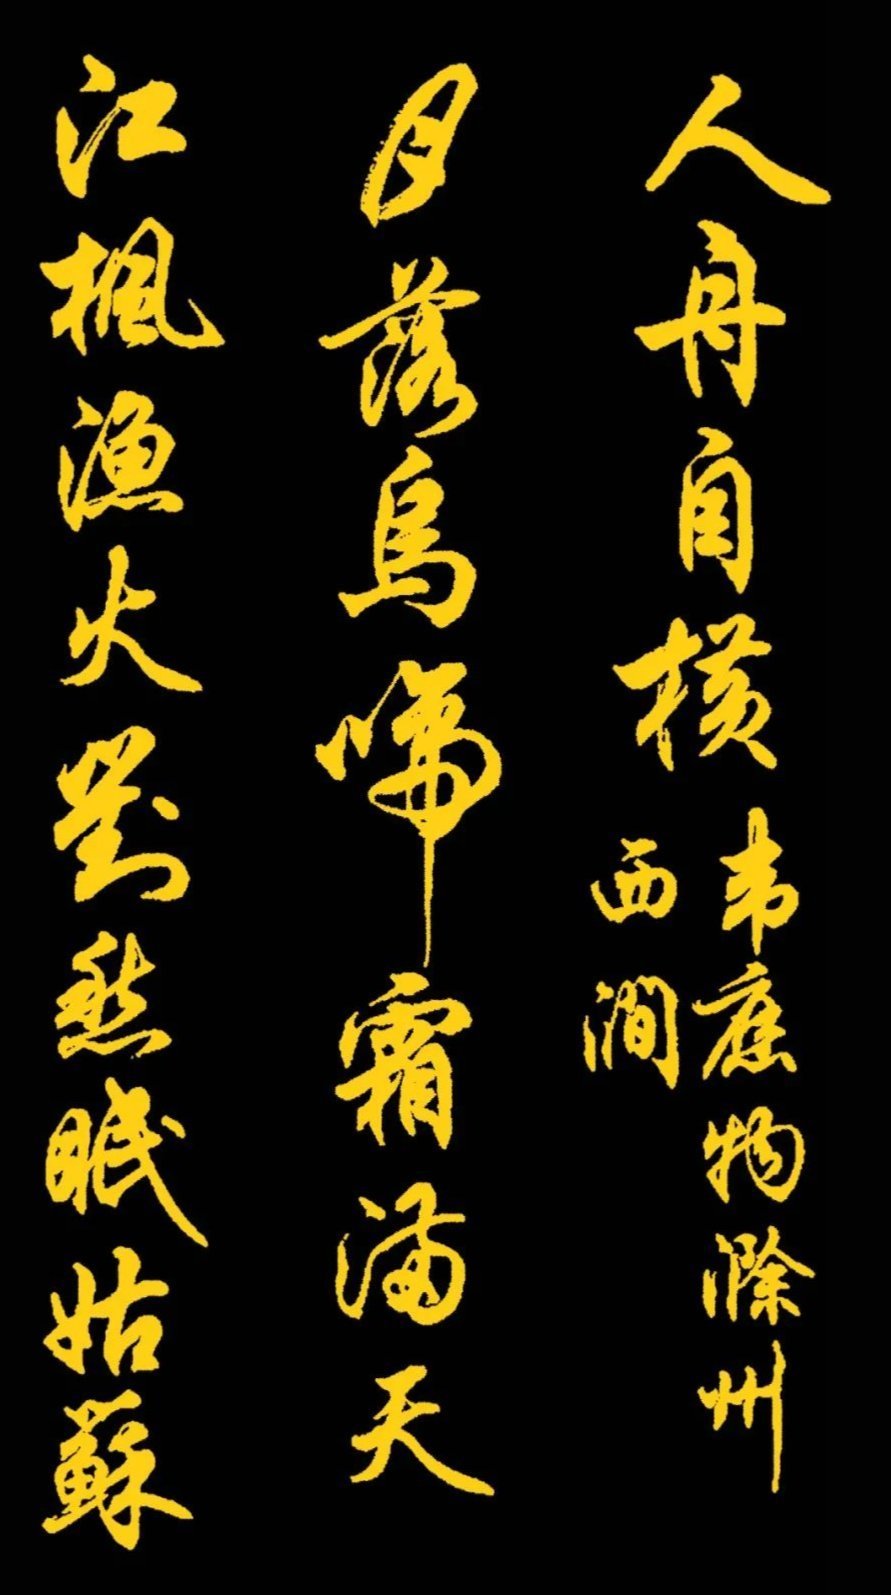 人舟自横
韦應物滁州
西澗
月落烏啼霜满天
江楓漁火對愁眠姑蘇